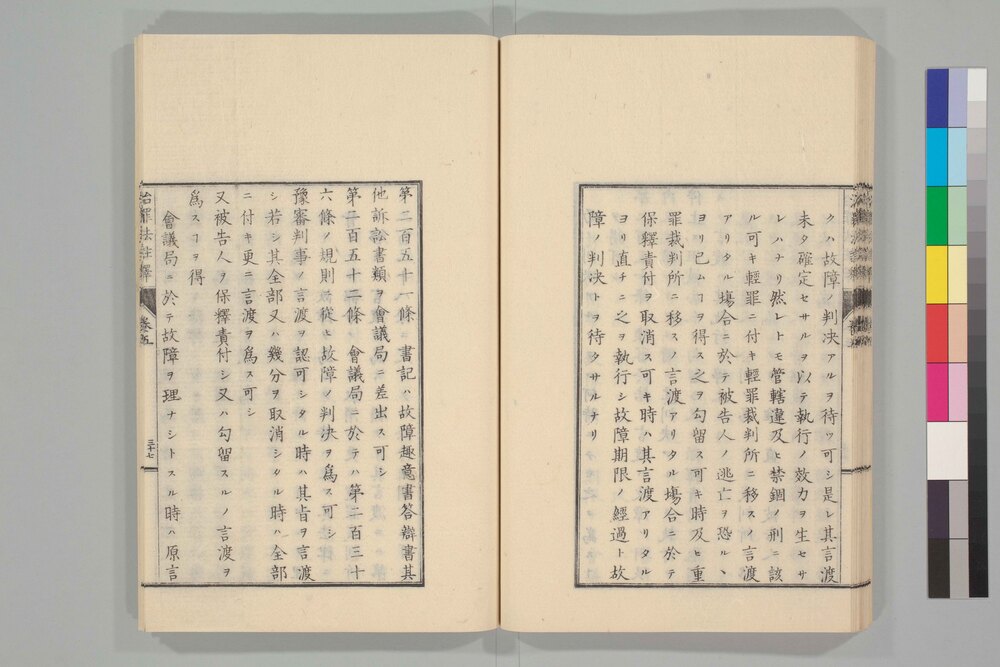 クハ故障ノ判決アルヲ待ツ可シ是レ其言渡
未タ確定セサルヲ以テ執行ノ效力ヲ生セサ
レハナリ然レトモ管轄違及ヒ禁錮ノ刑ニ該
ル可キ輕罪ニ付キ輕罪裁判所ニ移スノ言渡
アリタル塲合ニ於テ被告人ノ逃亡ヲ恐ルヽ
ヨリ已ムヿヲ得ス之ヲ勾留ス可キ時及ヒ重
罪裁判所ニ移スノ言渡アリタル塲合ニ於テ
保釋責付ヲ取消ス可キ時ハ其言渡アリタル
ヨリ直チニ之ヲ執行シ故障期限ノ經過ト故
障ノ判決トヲ待タサルナリ
第二百五十一條 書記ハ故障趣意書答辯書其
他訴訟書類ヲ會議局ニ差出ス可シ
第二百五十二條 會議局ニ於テハ第二百三十
六條ノ規則ニ從ヒ故障ノ判決ヲ爲ス可シ
豫審判事ノ言渡ヲ認可シタル時ハ其旨ヲ言渡
シ若シ其全部又ハ幾分ヲ取消シタル時ハ全部
ニ付キ更ニ言渡ヲ爲ス可シ
又被告人ヲ保釋責付シ又ハ勾留スルノ言渡ヲ
爲スヿヲ得
會議局ニ於テ故障ヲ理ナシトスル時ハ原言
治罪法註釋 卷五 三十七